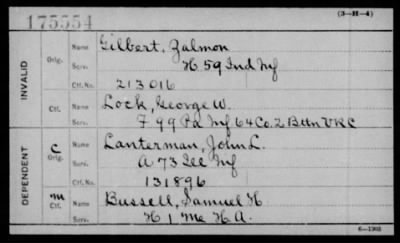 175554
(3—H—4)
INVALID
Orig.
Name Gilbert, Zalmon
Serv. H 59 Ind Inf
Ctf. No. 213016
Ctf.
Name Lock, George W.
Serv. F 99 Pa Inf 64 Co. 2 Battn VRC
DEPENDENT
C
Orig.
Name Lanterman, John L.
Serv. A 73 Ill Inf
Ctf. No. 131896
m
Ctf.
Name Bussell, Samuel H
Serv. H 1 Me H A.
6—1903